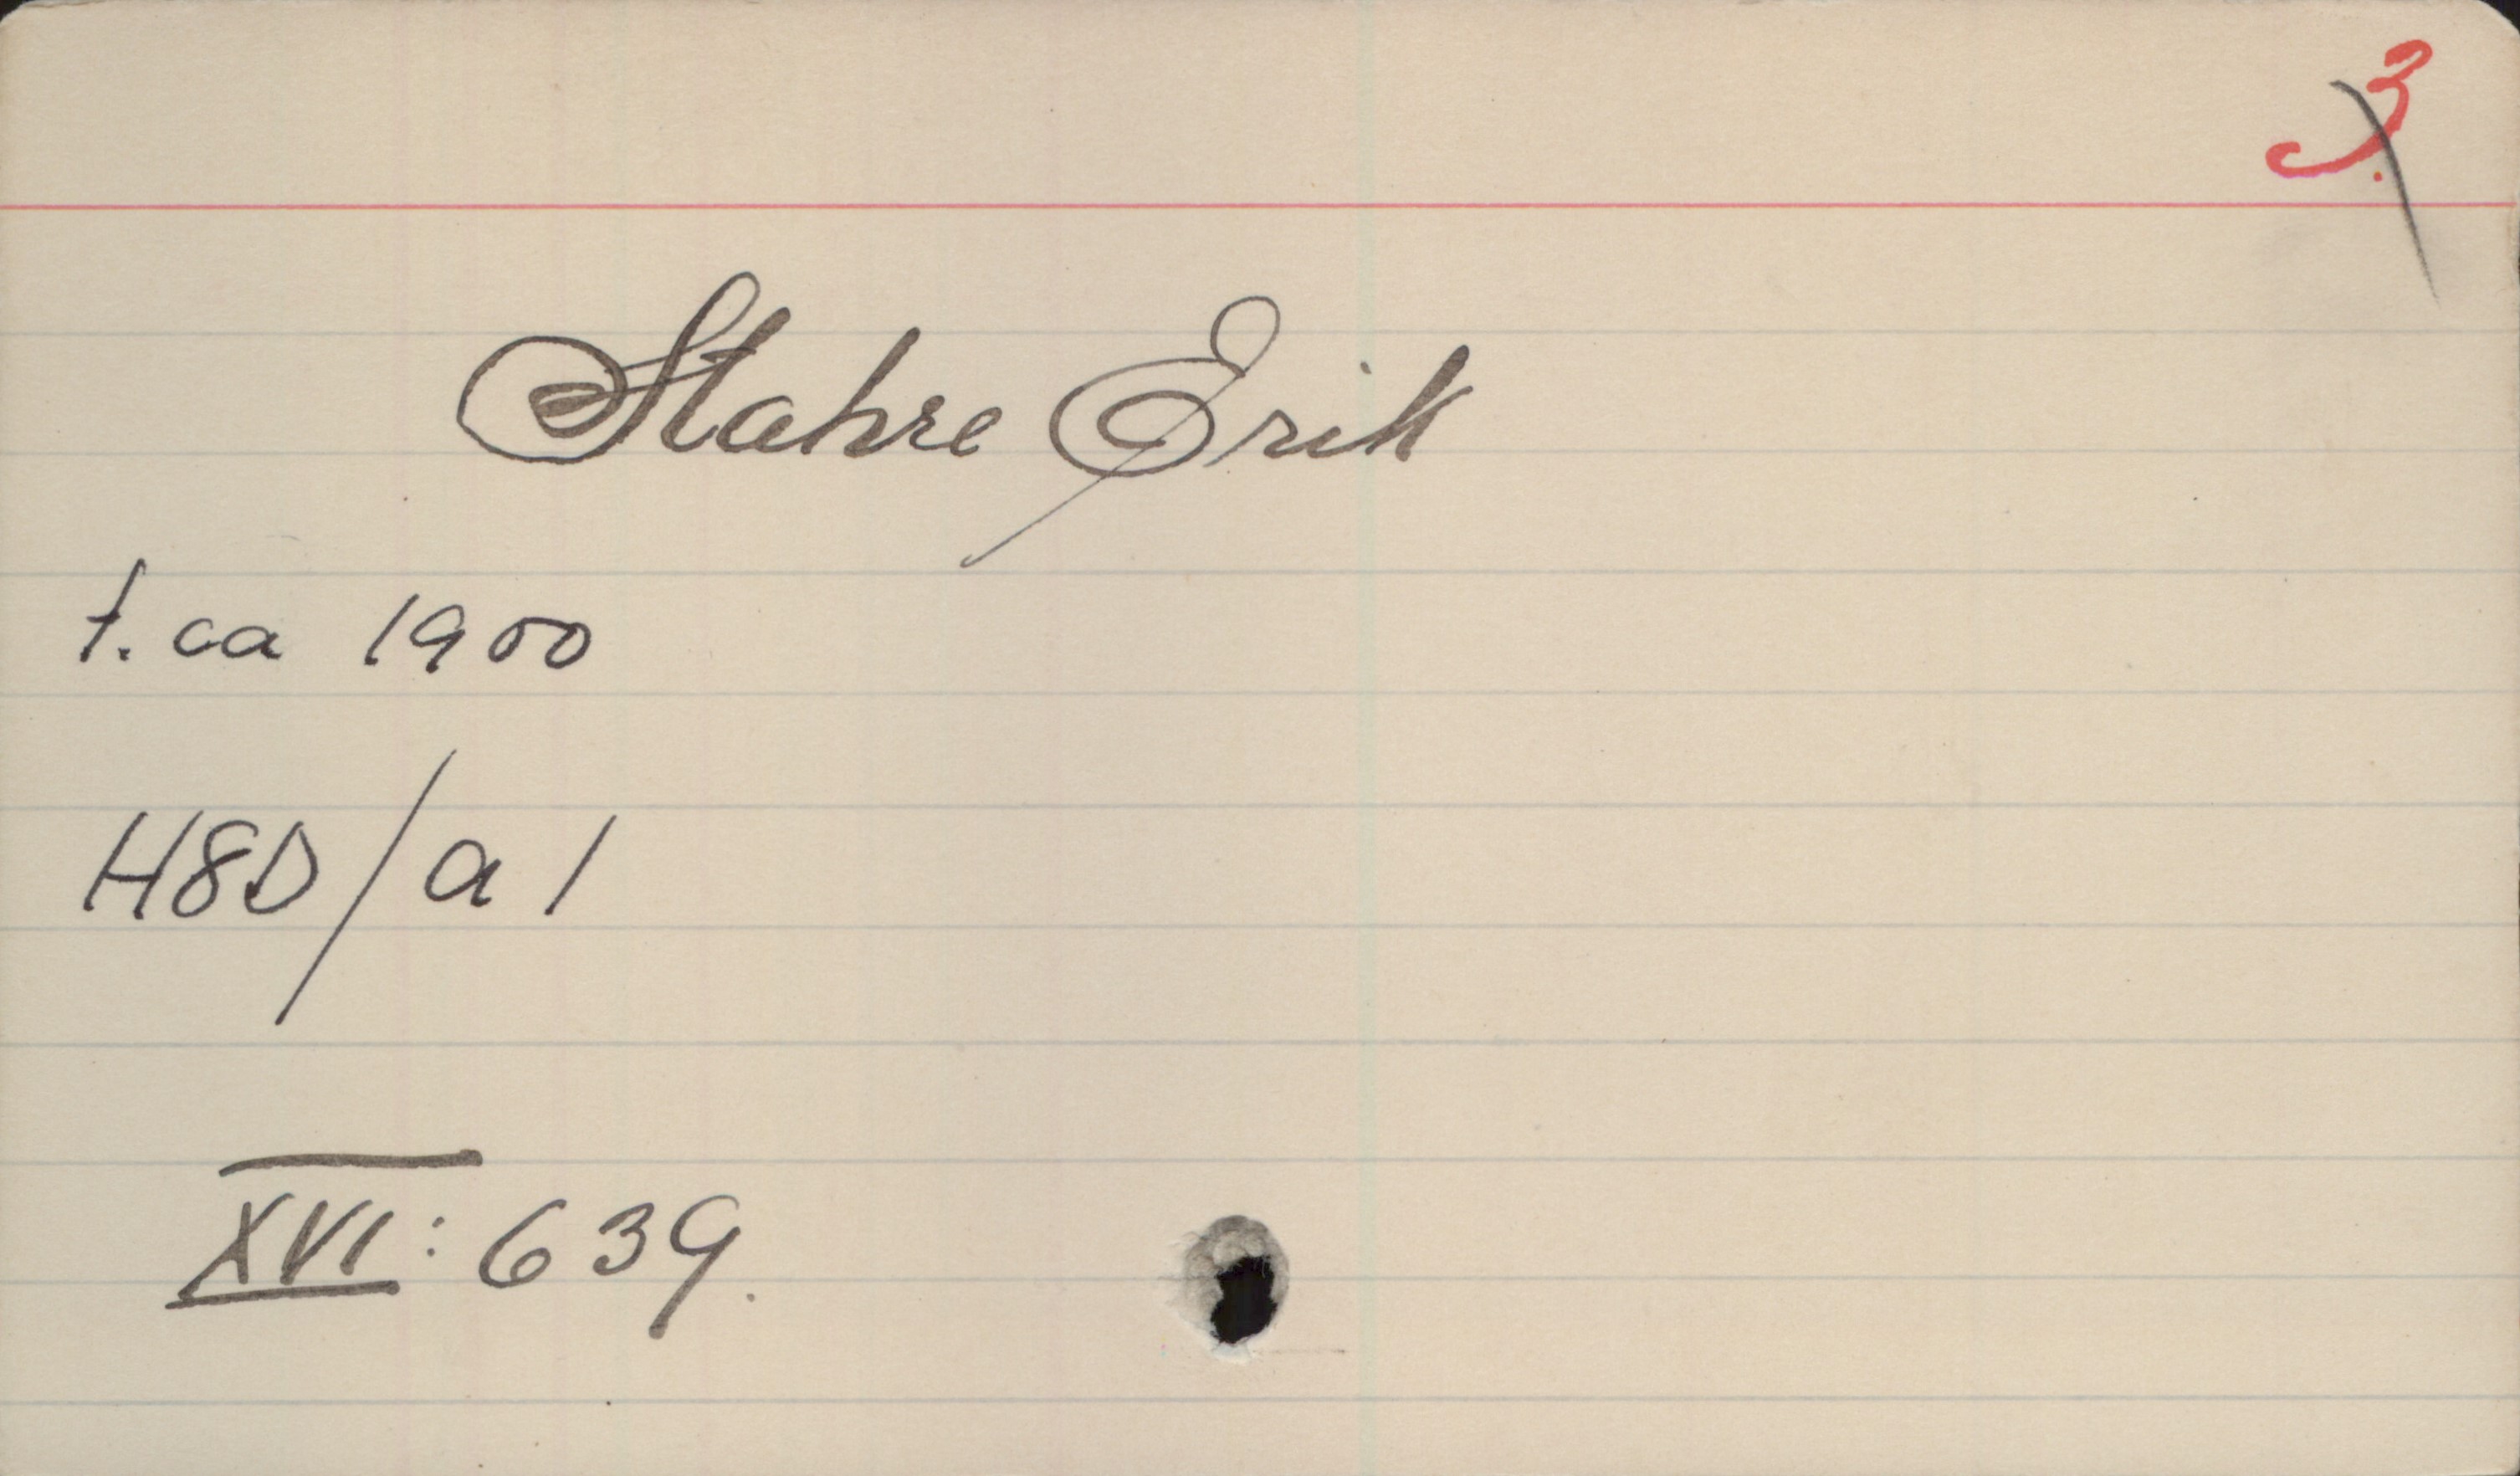 3.
Stahre Erik
f. ca 1900
H8D/a 1
XVI: 639.